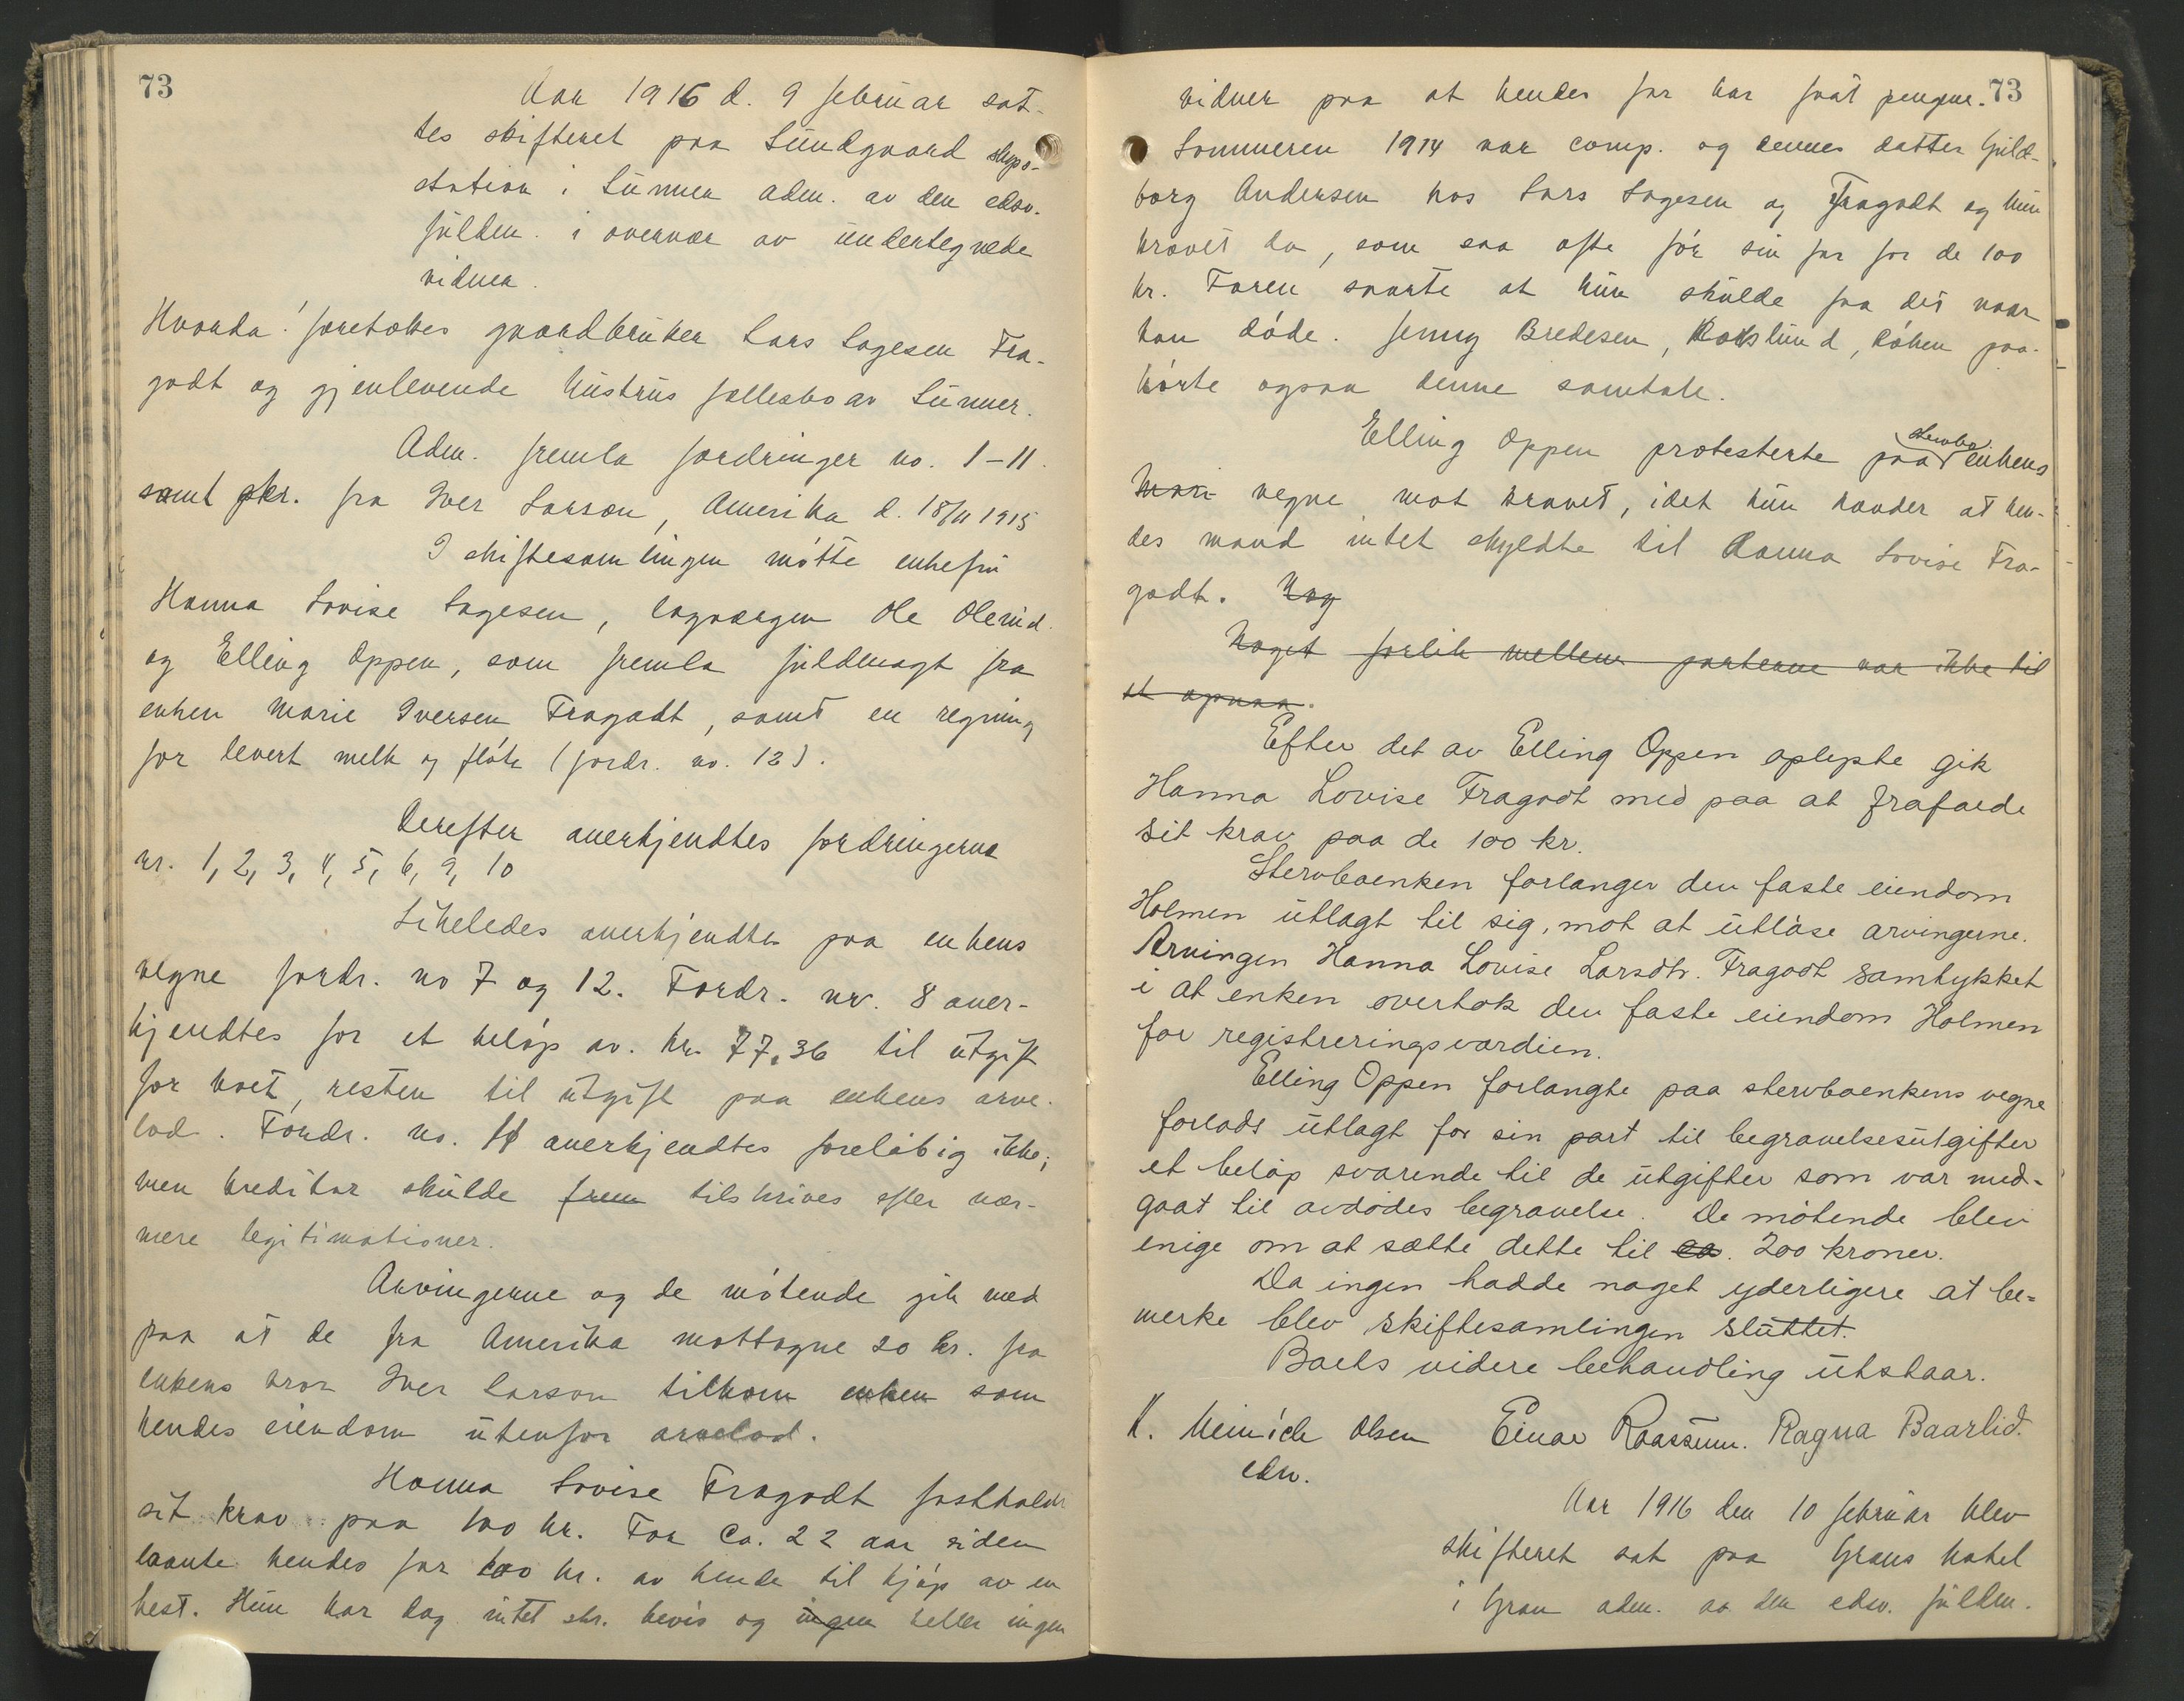 73
Aar 1916 d. 9 februar sat-
tes skifteret paa Lundgaard skyds-
station i Lunner adm. av den edsv.
fuldm. i overvær av undertegnede
vidner.
Hvorda! foretokes gaardbruker Lars Lagesen Fra-
godt og gjenlevende hustrus fællesbo av Lunner.
Adm. fremla fordringer no. 1-11.
samt skr. fra Iver Larson, Amerika d. 18/11 1915
I skiftesamlingen møtte enkefru
Hanna Lovise Lagesen, lagværgen Ole Olerud
og Elling Oppen, som fremla fuldmagt fra
enken Marie Iversen Fragodt, samt en regning
for levert melk og fløte (fordr. no. 12).
Derefter anerkjendtes fordringerne
nr. 1, 2, 3, 4, 5, 6, 9, 10
Likeledes anerkjendtes paa enkens
vegne fordr. no 7 og 12. Fordr. nr. 8 aner-
kjendtes for et beløp av. kr. 77,36 til utgift
for boet, resten til utgift paa enkens arve-
lod. Fordr. no. 11 anerkjendtes foreløbig ikke;
men kreditor skulde frem tilskrives efter nær-
mere legitimationer.
Arvingerne og de møtende gik med
paa at de fra Amerika mottagne 20 kr. fra
enkens bror Iver Larson tilkom enken som
hendes eiendom utenfor arvelod.
Hanna Lovise Fragodt fastholdt
sit krav paa 100 kr. For ca. 22 aar siden
laante hendes far 100 kr. av hende til kjøp av en
hest. Hun har dog intet skr. bevis og ingen heller ingen
73
vidner paa at hendes far har faat pengene.
Sommeren 1914 var comp. og dennes datter Guld-
borg Andersen hos Lars Lagesen og Fragodt og hun
krævet da, som saa ofte før sin far for de 100
kr. Faren svarte at hun skulde faa det naar
han døde. Jenny Bredesen, Rokslund, Røken paa-
hørte ogsaa denne samtale.
Elling Oppen protesterte paa stervbo enkens
vegne mot kravet, idet hun hævder at hen-
des mand intet skyldte til Hanna Lovise Fra-
godt. Nog
Noget forlik mellem parterne var ikke til
at opnaa.
Efter det av Elling Oppen oplyste gik
Hanna Lovise Fragodt med paa at frafalde
sit krav paa de 100 kr.
Stervboenken forlanger den faste eiendom
Holmen utlagt til sig, mot at utløse arvingerne.
Arvingen Hanna Lovise Larsdtr. Fragodt samtykket
i at enken overtok den faste eiendom Holmen
for registreringsværdien.
Elling Oppen forlangte paa stervboenkens vegne
forlods utlagt for sin part til begravelsesutgifter
et beløp svarende til de utgifter som var med-
gaat til avdødes begravelse. De møtende blev
enige om at sætte dette til ca. 200 kroner.
Da ingen hadde noget yderligere at be-
merke blev skiftesamlingen sluttet.
Boets videre behandling utstaar.
K. Meinich Olsen Einar Raassum. Ragna Baarlid.
edsv.
Aar 1916 den 10 februar blev
skifteret sat paa Grans hotel
i Gran adm. av den edsv. fuldm.